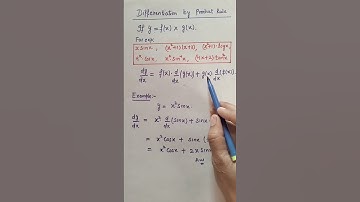 Differentiation by Product Rule
If y = f(x) × g(x).
For ex:
x sinx, (x²+1)(x+2), (x²+1).logx
x² cosx, x³ sin⁻¹x, (4x+2)tan⁻¹x
dy/dx = f(x). d/dx (g(x)) + g(x). d/dx (f(x)).
Example:-
y = x² sinx.
dy/dx = x² d/dx (sinx) + sinx
= x² cosx + sinx (
= x² cosx + 2x sin
Ans